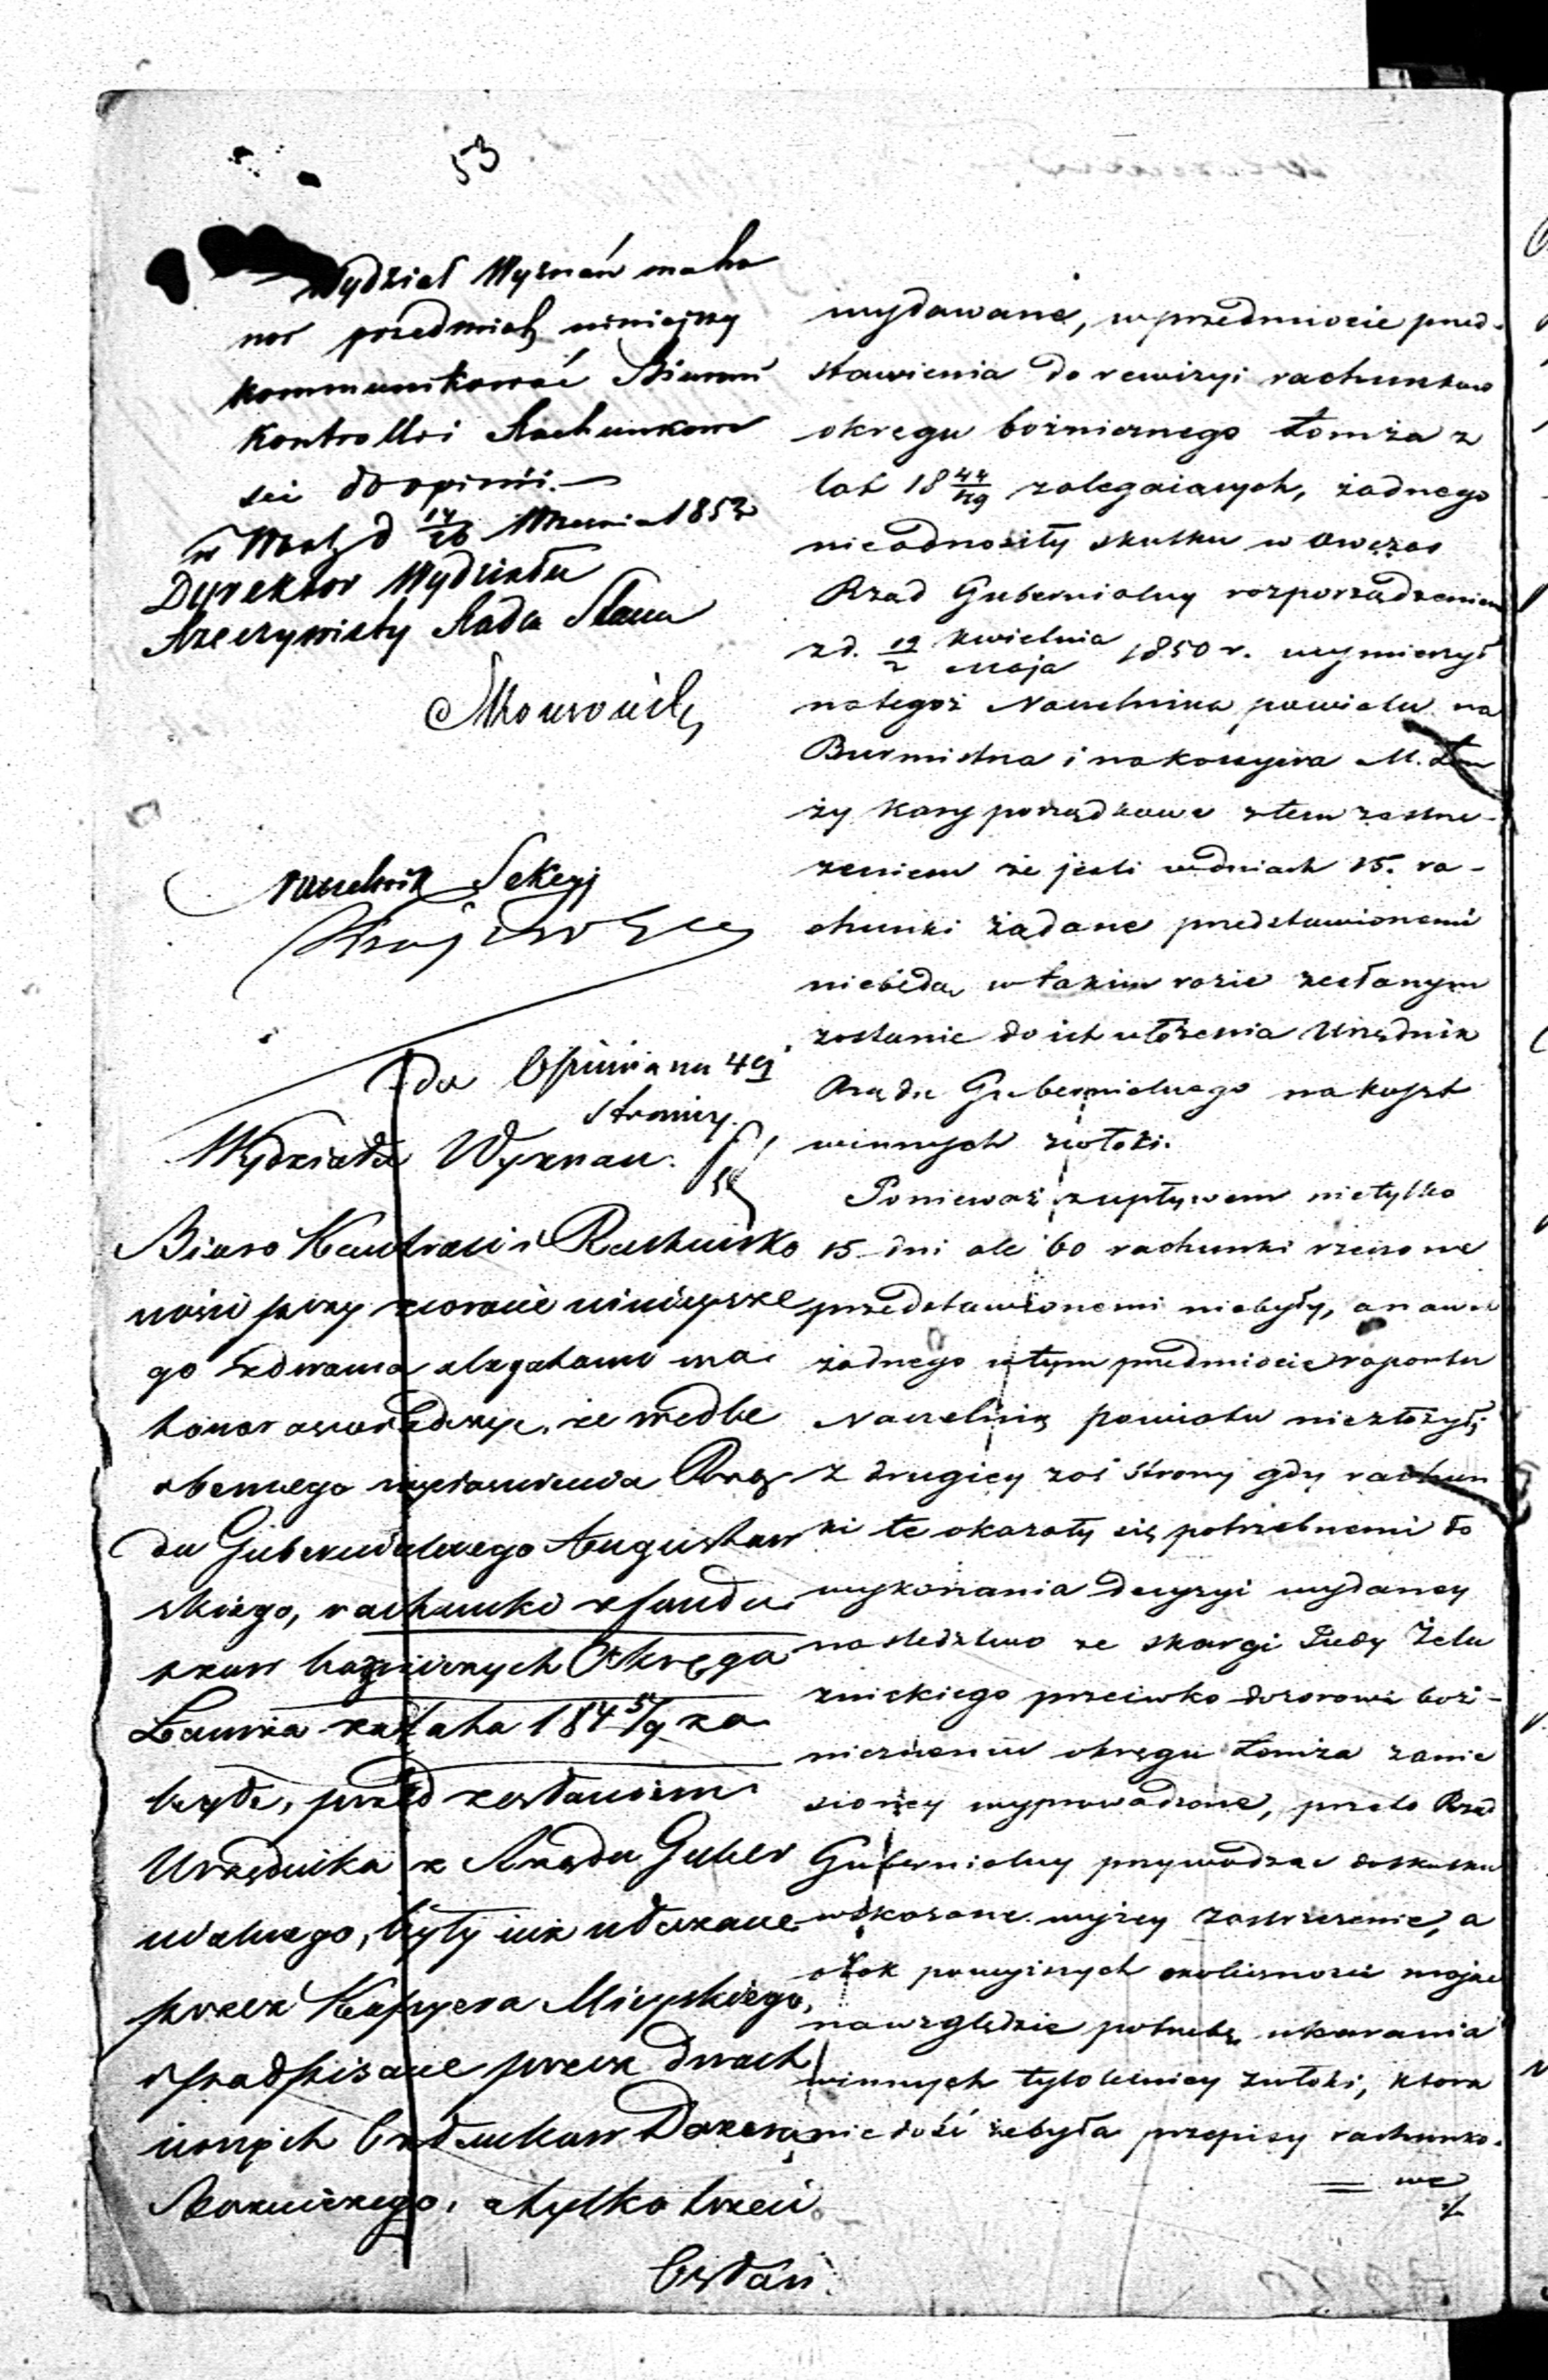 53
Wydział Wyznań ma ho
nor przedmiot niniejszy
kommunikować Biuru
Kontrolli i Rachunkowo
ści do opinii.—
w Warsz d 14/26 Września 1852
Dyrektor Wydziału
Rzeczywisty Radca Stanu
Naczelnik Sekcyi
Opinia na 4ej
stronicy.
Wydziału Wyznań.
Biuro Kontroli i Rachunko
wości przy zwrocie niniejsze
go z dwoma allegatami ma
honor oświadczyć, że wedle
obecnego wyjaśnienia Rzą
du Gubernialnego Augustow
skiego, rachunki z fundu
szów bóżniczych Okręgu
Łomża za lata 184 5/9 za
były, przed zesłaniem
Urzędnika z Rządu Guber
nialnego, były już ułożone
przez Kassyera Mieyskiego,
i podpisane przez dwóch
innych Członków Dozoru
Bożniczego, a tylko trzeci
Członek
wydawane, w przedmiocie przed-
stawienia do rewizyi rachunków
okręgu bożnicznego Łomża z
lat 18 44/49 zalegaiących, żadnego
nieodnosiły skutku w owczas
Rząd Gubernialny rozporządzeniem
z d. 19/2 kwietnia/maja 1850 r. wymierzył
na tegoż Naczelnika powiatu na
Burmistrza i na kassyera M. Łom
ży kary porządkowe z tem zastrze-
żeniem że jeśli w dniach 15. ra-
chunki żądane przedstawionemi
niebędą w takim razie zesłanym
zostanie do ich ułożenia Urzędnik
Rządu Gubernialnego na koszt
winnych zwłoki.
Ponieważ z upływem nietylko
15 dni ale 60 rachunki rzeczone
przedstawionemi niebyły, a nawet
żadnego w tym przedmiocie raportu
Naczelnik powiatu niezłożył;
z drugiey zaś strony gdy rachun
ki te okazały się potrzebnemi do
wykonania decyzyi wydaney
na śledztwo ze skargi Judy Żela
znickiego przeciwko dozorowi boż-
nicznemu okręgu Łomża zanie
sioney wyprowadzone, przeto Rząd
Gubernialny przywodząc do skutku
wskazane wyżey zastrzeżenie, a
obok powyższych okoliczności mając
na względzie potrzebę ukarania
winnych tyloletniey zwłoki, która
nie dość że była przepisy rachunko-
we